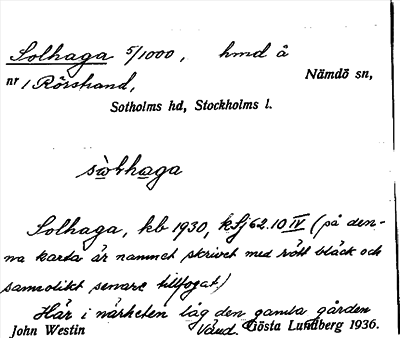 Solhaga 5/1000, hmd å
nr 1 Rörstrand, Nämdö sn,
Sotholms hd, Stockholms l.
sòlhaga
Solhaga, kb 1930, kfj 62.10 IV (på den-
na karta är namnet skrivet med rött bläck och
sannolikt senare tillfogat)
Här i närheten låg den gamla gården
John Westin Gösta Lundberg 1936.